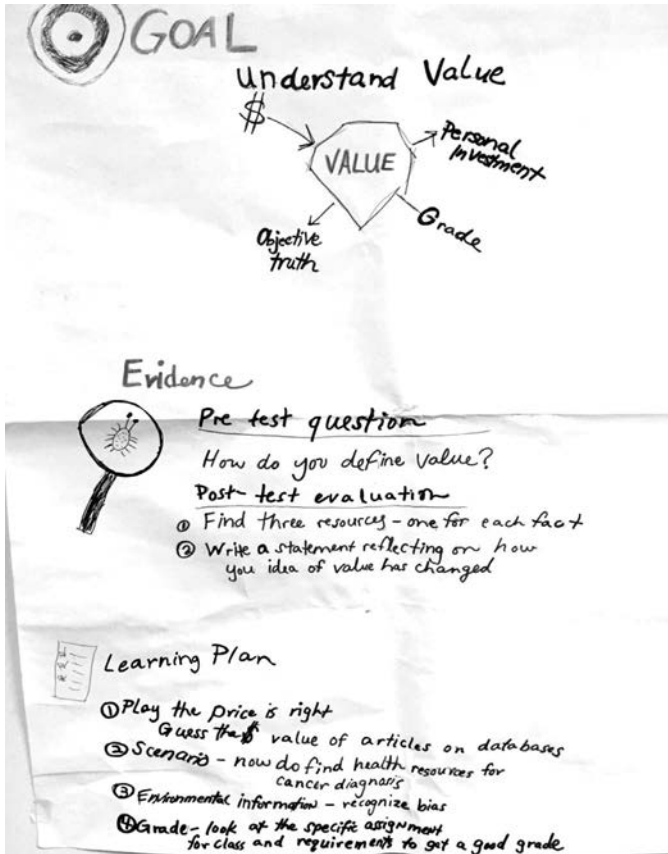 GOAL
Understand Value
$
VALUE
Personal
Investment
Grade
Objective
truth
Evidence
Pre test question
How do you define value?
Post-test evaluation
① Find three resources - one for each fact
② Write a statement reflecting on how
you idea of value has changed
Learning Plan
① Play the price is right
Guess the $ value of articles on databases
② Scenario - now do find health resources for
cancer diagnosis
③ Environmental information - recognize bias
④ Grade - look at the specific assignment
for class and requirements to get a good grade